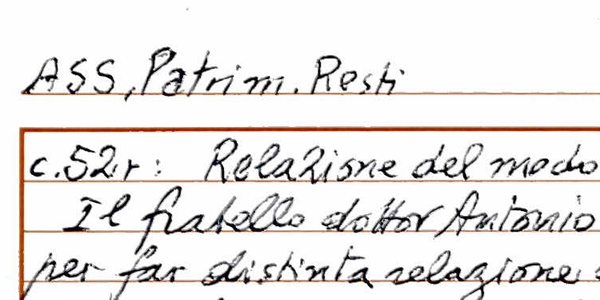 ASS, Patrim. Resti
c.52.r: Relazione del modo
Il fratello dottor Antonio
per far distinta relazione